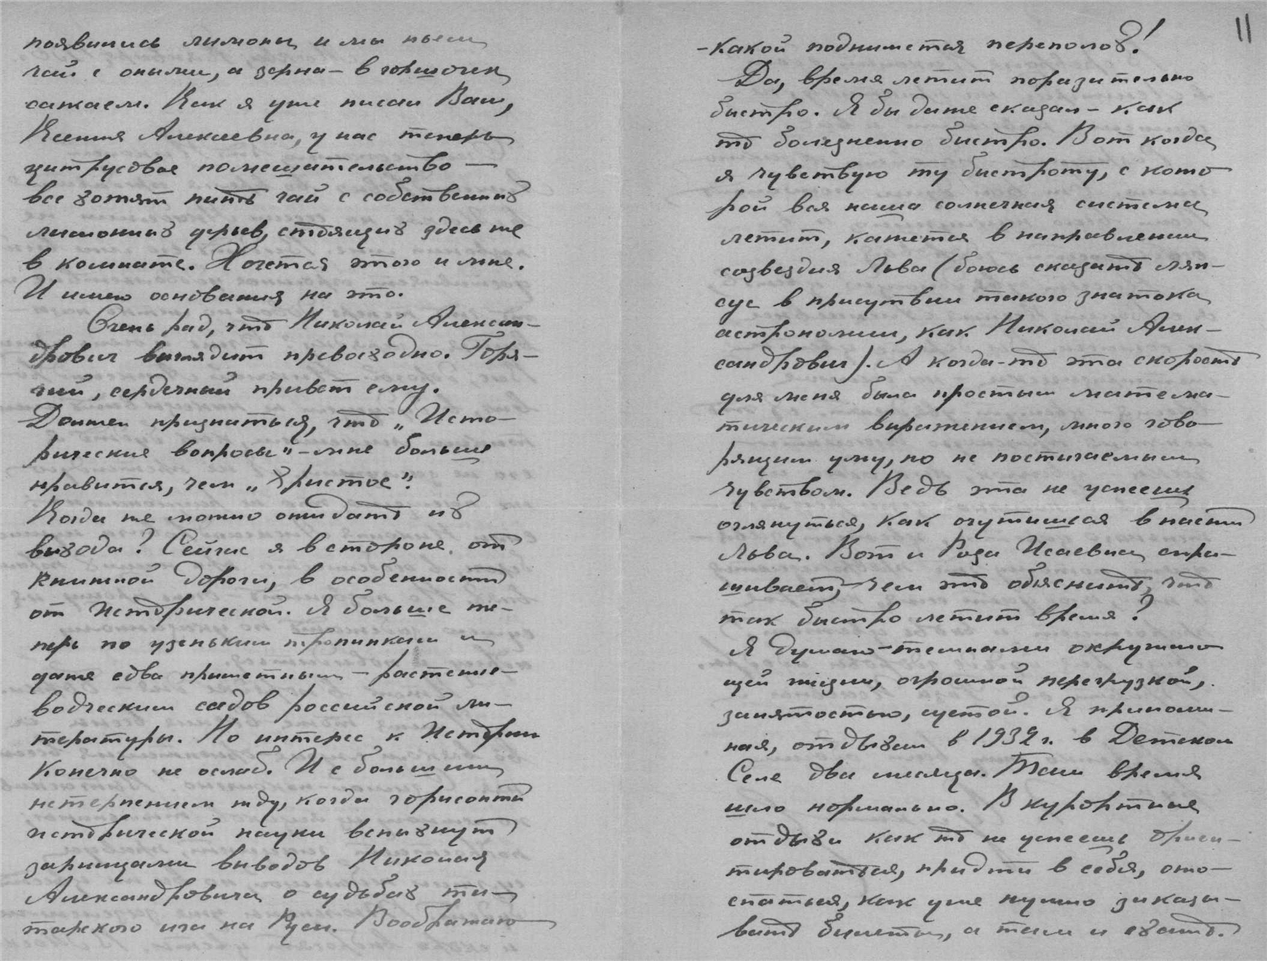 появились лимоны и мы пьем
чай с оными, а зерна – в горшочек
сажаем. Как я уже писал Вам,
Ксения Алексеевна, у нас теперь
цитрусовое помешательство –
все хотят пить чай с собственных
лимонных дерьев, стоящих здесь же
в комнате. Хочется этого и мне.
И имею основания на это.
Очень рад, что Николай Алексан-
дрович выглядит превосходно. Горя-
чий, сердечный привет ему.
Должен признаться, что „Исто-
рические вопросы" – мне больше
нравится, чем „Христос".
Когда же можно ожидать их
выхода? Сейчас я в стороне от
книжной дороги, в особенности
от исторической. Я больше те-
перь по узеньким тропинкам и
даже едва приметным – растение-
водческим садов российской ли-
тературы. Но интерес к Истории
конечно не ослаб. И с большим
нетерпением жду, когда горизонты
исторической науки вспыхнут
зарницами выводов Николая
Александровича о судьбах та-
тарского ига на Руси. Воображаю
11
– какой поднимется переполох!
Да, время летит поразительно
быстро. Я бы даже сказал – как
то болезненно быстро. Вот когда
я чувствую ту быстроту, с кото
рой вся наша солнечная система
летит, кажется в направлении
созвездия Льва (боюсь сказать ляп-
сус в присутствии такого знатока
астрономии, как Николай Алек-
сандрович). А когда-то эта скорость
для меня была простым матема-
тическим выражением, много гово-
рящим уму, но не постигаемым
чувством. Ведь эта не успеешь
оглянуться, как очутишься в пасти
Льва. Вот и Роза Исаевна спра-
шивает, чем это объяснить, что
так быстро летит время?
Я думаю – темпами окружаю
щей жизни, огромной перегрузкой,
занятостью, суетой. Я припоми-
ная, отдыхал в 1932 г. в Детском
Селе два месяца. Там время
шло нормально. В курортные
отдыхи как то не успеешь ориен-
тироваться, придти в себя, ото-
спаться, как уже нужно заказы-
вать билеты, а там и ехать.